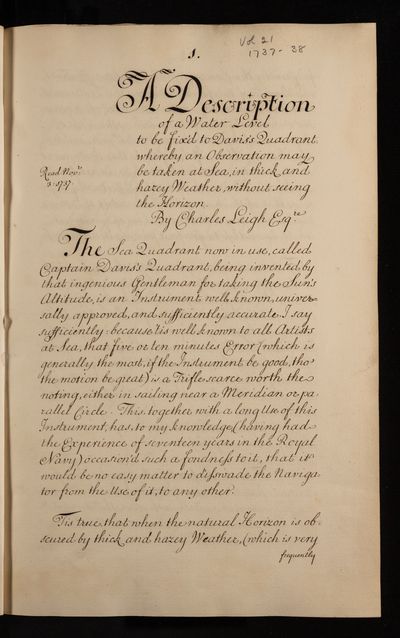 1.
Vol 21
1737-38
A Description
of a Water Level
to be fixed to Davis's Quadrant.
whereby an Observation may
be taken at Sea, in thick and
hazey Weather, without seeing
the Horizon.
By Charles Leigh Esq.re
Read Nov.r
3. 1737.
The Sea Quadrant now in use, called
Captain Davis's Quadrant, being invented by
that ingenious Gentleman for taking the Sun's
Altitude, is an Instrument well known, univer-
sally approved, and sufficiently accurate. I say
sufficiently: because 'tis well known to all Artists
at Sea, that five or ten minutes Error (which is
generally the most, if the Instrument be good, tho'
the motion be great) is a Trifle scarce worth the
noting, either in sailing near a Meridian or pa-
rallel Circle. This, together with a long Use of this
Instrument, has, to my knowledge (having had
the Experience of seventeen years in the Royal
Navy) occasion'd such a fondness to it, that it
would be no easy matter to disswade the Naviga-
tor from the Use of it, to any other.
Tis true, that when the natural Horizon is ob-
scured by thick and hazey Weather, (which is very
frequently